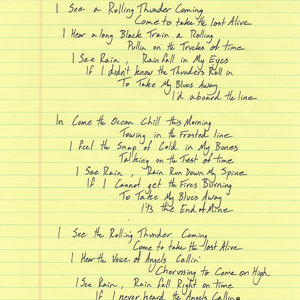 I See a Rolling Thunder Coming
Come to take the lost Alive
I Hear a long Black Train a Rolling
Pullin on the Trucks of time
I See Rain, Rain fall in My Eyes
If I didn't know the Thunders Roll in
To Take My Blues Away
I'd aboard the line
In Come the Ocean Chill this Morning
Towing in the Frosted line
I Feel the Snap of Cold in My Bones
Talking on the Test of time
I See Rain, Rain Run Down My Spine
If I Cannot get the Fires Burning
To Take My Blues Away
It's the End of Mine
I See the Rolling Thunder Coming
Come to take the lost Alive
I Hear the Voice of Angels Callin'
Chorussing to Come on High
I See Rain, Rain Fall Right on time
If I never heard the Angels Calling